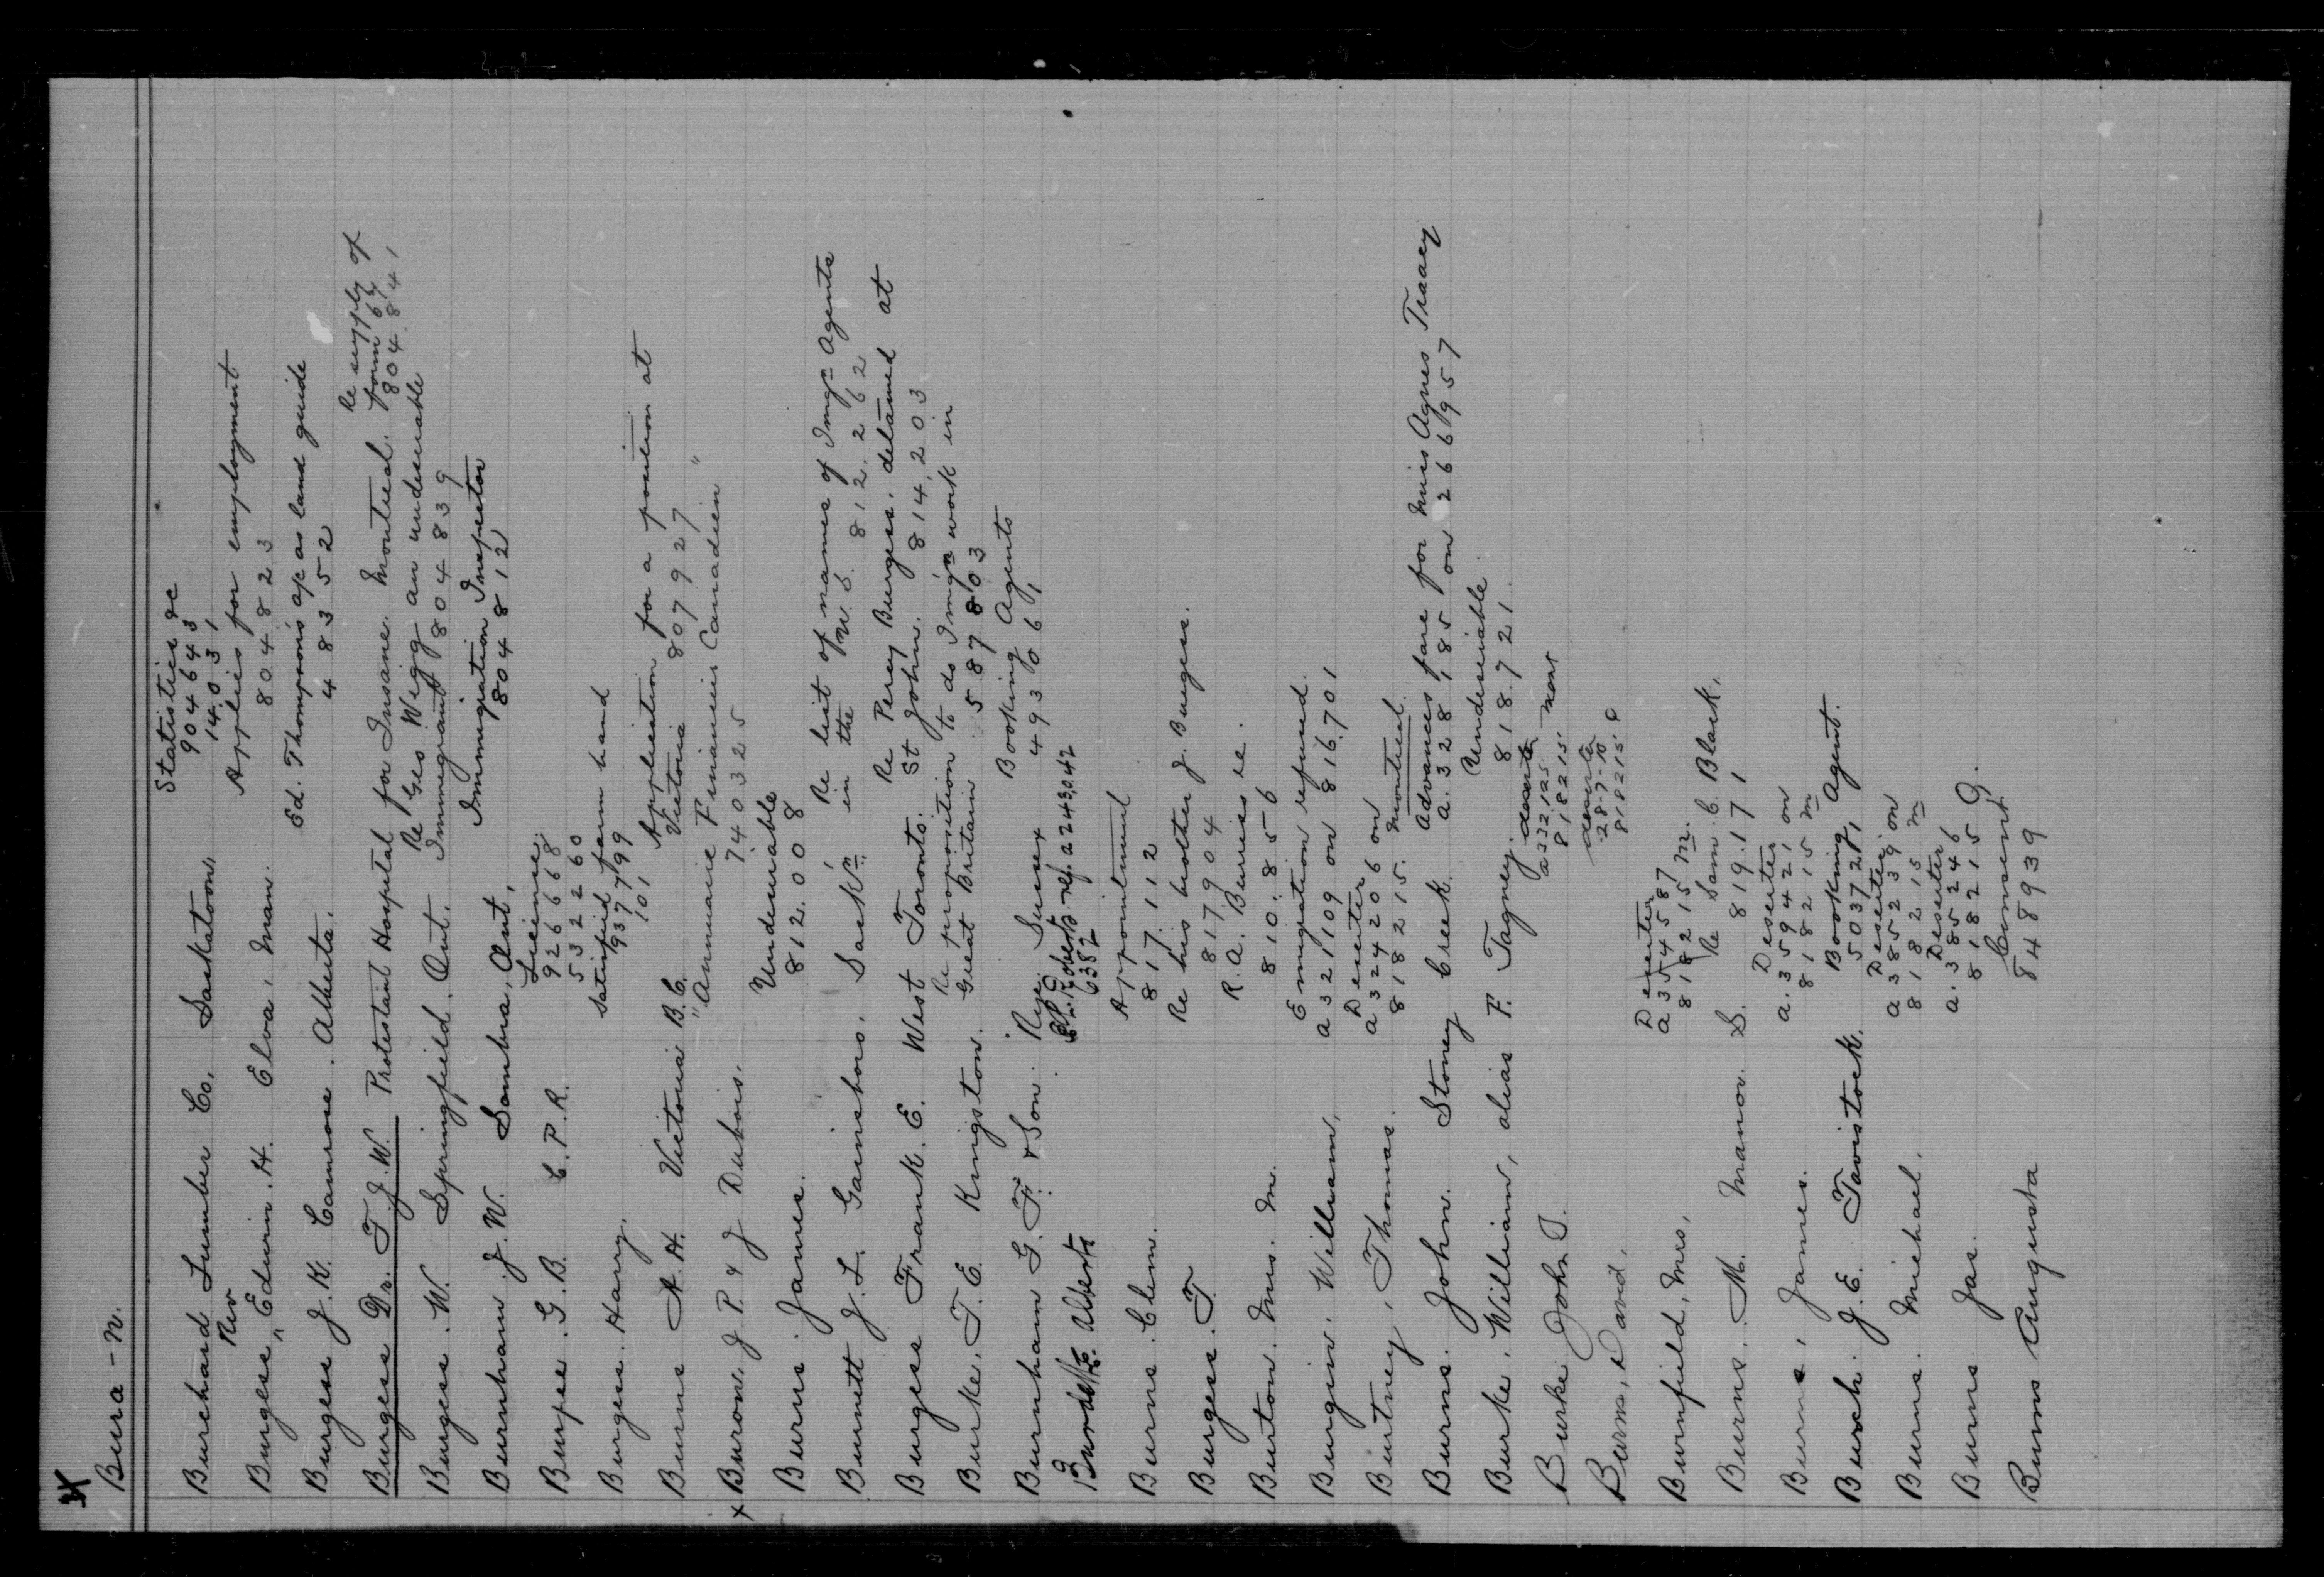 Bura - N.
Burchard Lumber Co. Saskatoon, Statistics &c
904643
14.031
Burgess, Rev Edwin. H. Elva, Man. Applies for employment
804.823
Burgess J. K. Camrose. Alberta. Ed. Thompson's ap as land guide
483552
Burgess Dr. T. J. W. Protestant Hospital for Insane. Montreal. Re supply of
form 64
804.841
Burgess. W. Springfield. Ont. Re Geo Wigg an undesirable
Immigrant 804839
Burnham. J. W. Sombra, Ont, Immigration Inspector
804812
Burpee. G. B. C.P.R. License.
926668
532260
Burgess. Harry. Satisfied farm hand
937799
101
Burns A. H. Victoria B.C. Application for a position at
Victoria 807927
x Burow. J. P. & J Dubois. "Annuaire Financier Canadien"
740325
Burns. James. Undesirable
812.008
Burnett J. L. Gainsboro. Sask'n. Re list of names of Imgn Agents
in the U.S. 812.262
Burgess Frank. E. West Toronto. Re Percy Burgess. detained at
St John. 814,203
Burke. T. E. Kingston. Re proposition to do Imign work in
Great Britain 587803
Burnham G. F. & Son. Rye Sussex Booking Agents
493061
Burdett. Alberta. Roberts ref. 2243,042
6382
Burns. Clem. Appointment
817.112
Burgess. T. Re his brother J. Burgess.
817904
Burton. Mrs. M. R. A. Burriss re.
810.856
Burgin. William, Emigration refused.
a 321109 on 816,701
Burtney, Thomas. Deserter
a 324206 on
818215. Montreal.
Burns. John. Stoney Creek. Advances fare for Miss Agnes Tracey
a. 328,185 on 266957
Burke. William, alias F. Tagney. Undesirable
818.721.
Burke John J. deserter
a 332,125
818215
Burns, David. deserter
28-7-10
818215
Burnfield, Mrs, Deserter
a 354587
818215 M.
Burns. M. Manor. S. Re Sam. C. Black,
819.171
Burns, James. Deserter
a. 359421 on
818215 M
Burch. J. E. Tavistock. Booking Agent.
503721
Burns. Michael. Deserter
a 385239 on
818215 M
Burns Jas. Deserter
a. 385246
818215 Q.
Burns Augusta Consent
848939